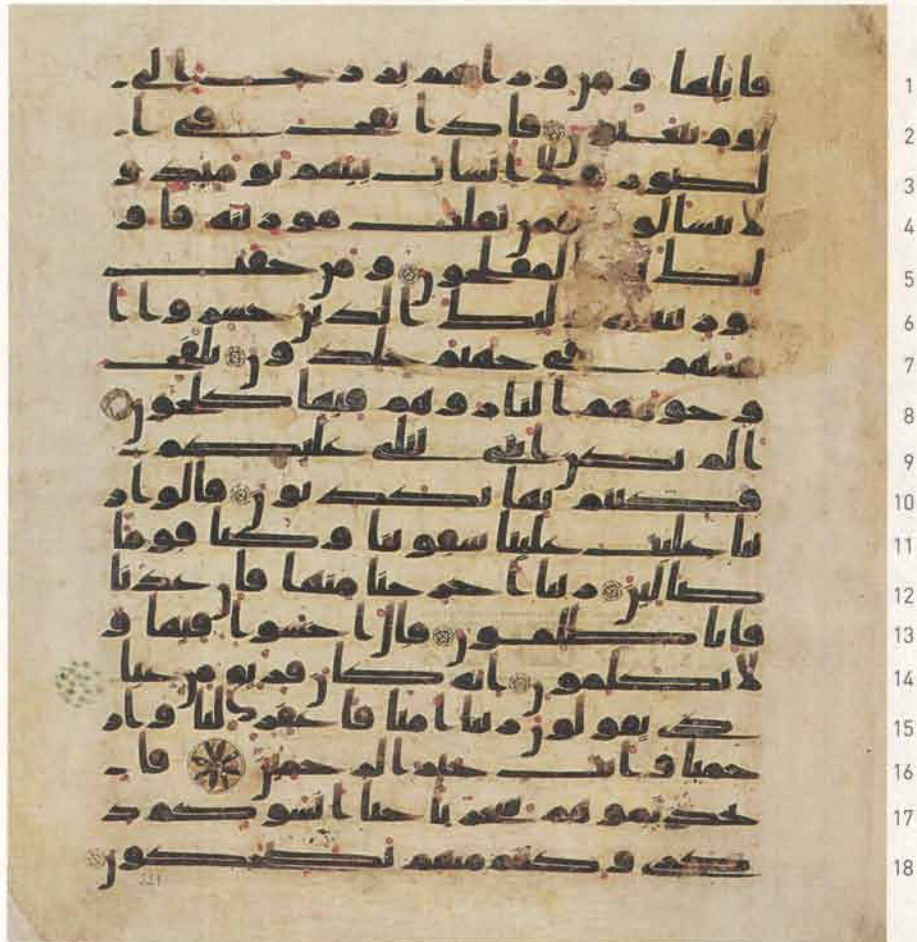 1 قايلها ومن وراهم برزخ الى
2 يوم يبعثون فاذا نفخ في ا
3 لصور فلا انساب بينهم يومئذ و
4 لا يتسالو فمن ثقلت موزينه فاو
5 ليك المفلحون ومن خفت
6 موزينه ليك الذين خسروا ا
7 نفسهم في جهنم خلدون تلفح
8 وجوههم النار وهم فيها كلحون
9 الم تكن ايتي تتلى عليكم
10 فكنتم بها تكذبون قالوا ر
11 بنا غلبت علينا شقوتنا وكنا قوما
12 ضالين ربنا اخرجنا منها فان عدنا
13 فانا ظلمون قال اخسوا فيها و
14 لا تكلمون انه كان فريق من عبا
15 دي يقولون ربنا امنا فاغفر لنا وار
16 حمنا وانت خير الرحمين فا
17 تخذتموهم سخريا حتا انسوكم ذ
18 كري وكنتم منهم تضحكون